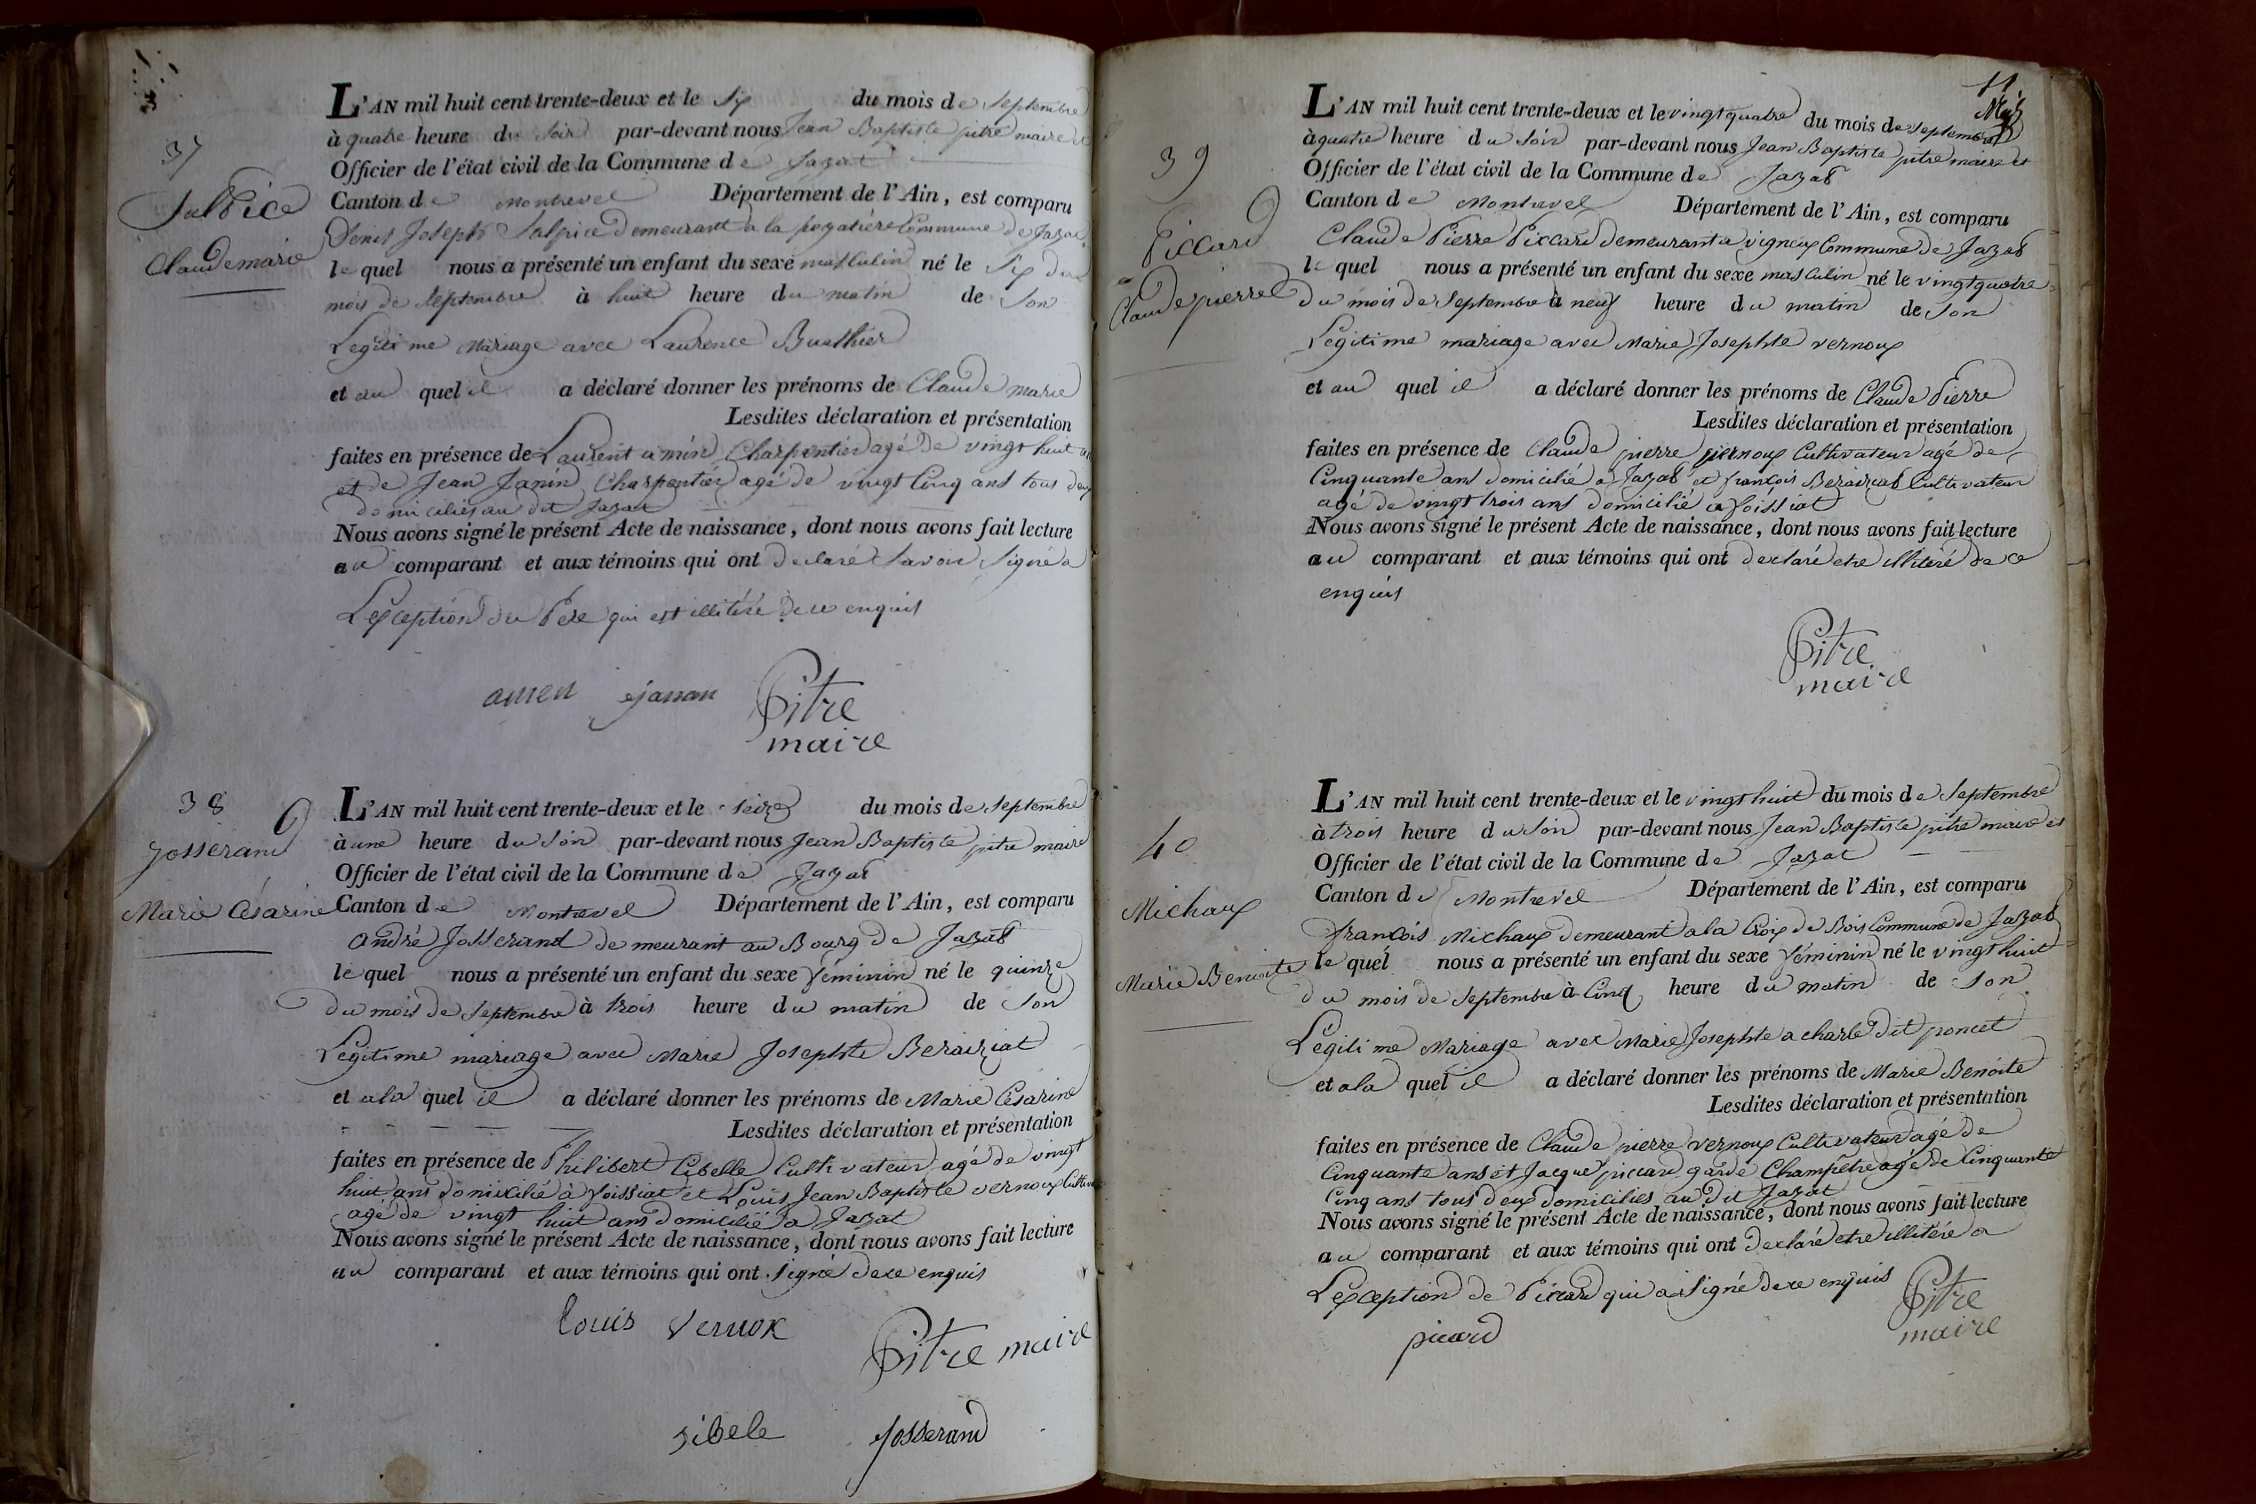 37
Sulpice
Claude marie
L'AN mil huit cent trente-deux et le Six du mois de Septembre
à quatre heure du Soir par-devant nous Jean Baptiste pitre maire et
Officier de l'état civil de la Commune de Jazat
Canton de Montrevel Département de l'Ain, est comparu
Denis Joseph Sulpice demeurant à la poyatière Commune de Jazat
le quel nous a présenté un enfant du sexe masculin né le Six du
mois de Septembre à huit heure du matin de Son
Legitime Mariage avec Laurence Buathier
et au quel il a déclaré donner les prénoms de Claude marie
Lesdites déclaration et présentation
faites en présence de Laurent amen Charpentier agé de vingt huit ans
et de Jean Janin Charpentier agé de vingt Cinq ans tous deux
domiciliés au dit Jazat
Nous avons signé le présent Acte de naissance, dont nous avons fait lecture
au comparant et aux témoins qui ont declaré Savoir Signé a
L'exception du Pere qui est illitéré de ce enquis
amen ejanan Pitre
maire
38
Josserand
Marie Césarine
L'AN mil huit cent trente-deux et le Seize du mois de Septembre
à une heure du Soir par-devant nous Jean Baptiste pitre maire
Officier de l'état civil de la Commune de Jazat
Canton de Montrevel Département de l'Ain, est comparu
andré Josserand demeurant au Bourg de Jazat
le quel nous a présenté un enfant du sexe féminin né le quinze
du mois de Septembre à trois heure du matin de Son
Legitime mariage avec Marie Josephte Beraiziat
et ala quel il a déclaré donner les prénoms de Marie Césarine
Lesdites déclaration et présentation
faites en présence de Philibert Cibelle Cultivateur agé de vingt
huit ans domicilié à foissiat et Louis Jean Baptiste vernoux Cultiva
agé de vingt huit ans domicilié a Jazat
Nous avons signé le présent Acte de naissance, dont nous avons fait lecture
au comparant et aux témoins qui ont Signé de ce enquis
Louis Vernox
Pitre maire
sibele Josserand
11
39
Piccard
Claude pierre
L'AN mil huit cent trente-deux et le vingt quatre du mois de Septembre
à quatre heure du Soir par-devant nous Jean Baptiste pitre maire et
Officier de l'état civil de la Commune de Jazat
Canton de Montrevel Département de l'Ain, est comparu
Claude Pierre Piccard demeurant a vigneux Commune de Jazat
le quel nous a présenté un enfant du sexe masculin né le vingt quatre
du mois de Septembre à neuf heure du matin de Son
Legitime mariage avec Marie Josephte vernoux
et au quel il a déclaré donner les prénoms de Claude Pierre
Lesdites déclaration et présentation
faites en présence de Claude pierre vernoux Cultivateur agé de
Cinquante ans domicilié a Jazat et françois Beraiziat Cultivateur
agé de vingt trois ans domicilié a foissiat
Nous avons signé le présent Acte de naissance, dont nous avons fait lecture
au comparant et aux témoins qui ont declaré etre illiteré de ce
enquis
Pitre
maire
40
Michaux
Marie Benoite
L'AN mil huit cent trente-deux et le vingt huit du mois de Septembre
à trois heure du Soir par-devant nous Jean Baptiste pitre maire et
Officier de l'état civil de la Commune de Jazat
Canton de Montrevel Département de l'Ain, est comparu
françois Michaux demeurant ala Croix de Bois Commune de Jazat
le quel nous a présenté un enfant du sexe féminin né le vingt huit
du mois de Septembre à Cinq heure du matin de Son
Legitime Mariage avec Marie Josephte a charle dit poncet
et ala quel il a déclaré donner les prénoms de Marie Benoite
Lesdites déclaration et présentation
faites en présence de Claude pierre vernoux Cultivateur agé de
Cinquante ans et Jacque piccard garde Champêtre agé de Cinquante
Cinq ans tous deux domiciliés au dit Jazat
Nous avons signé le présent Acte de naissance, dont nous avons fait lecture
au comparant et aux témoins qui ont declaré etre illitéré a
L'exception de Piccard qui a Signé de ce enquis
picard
Pitre
maire